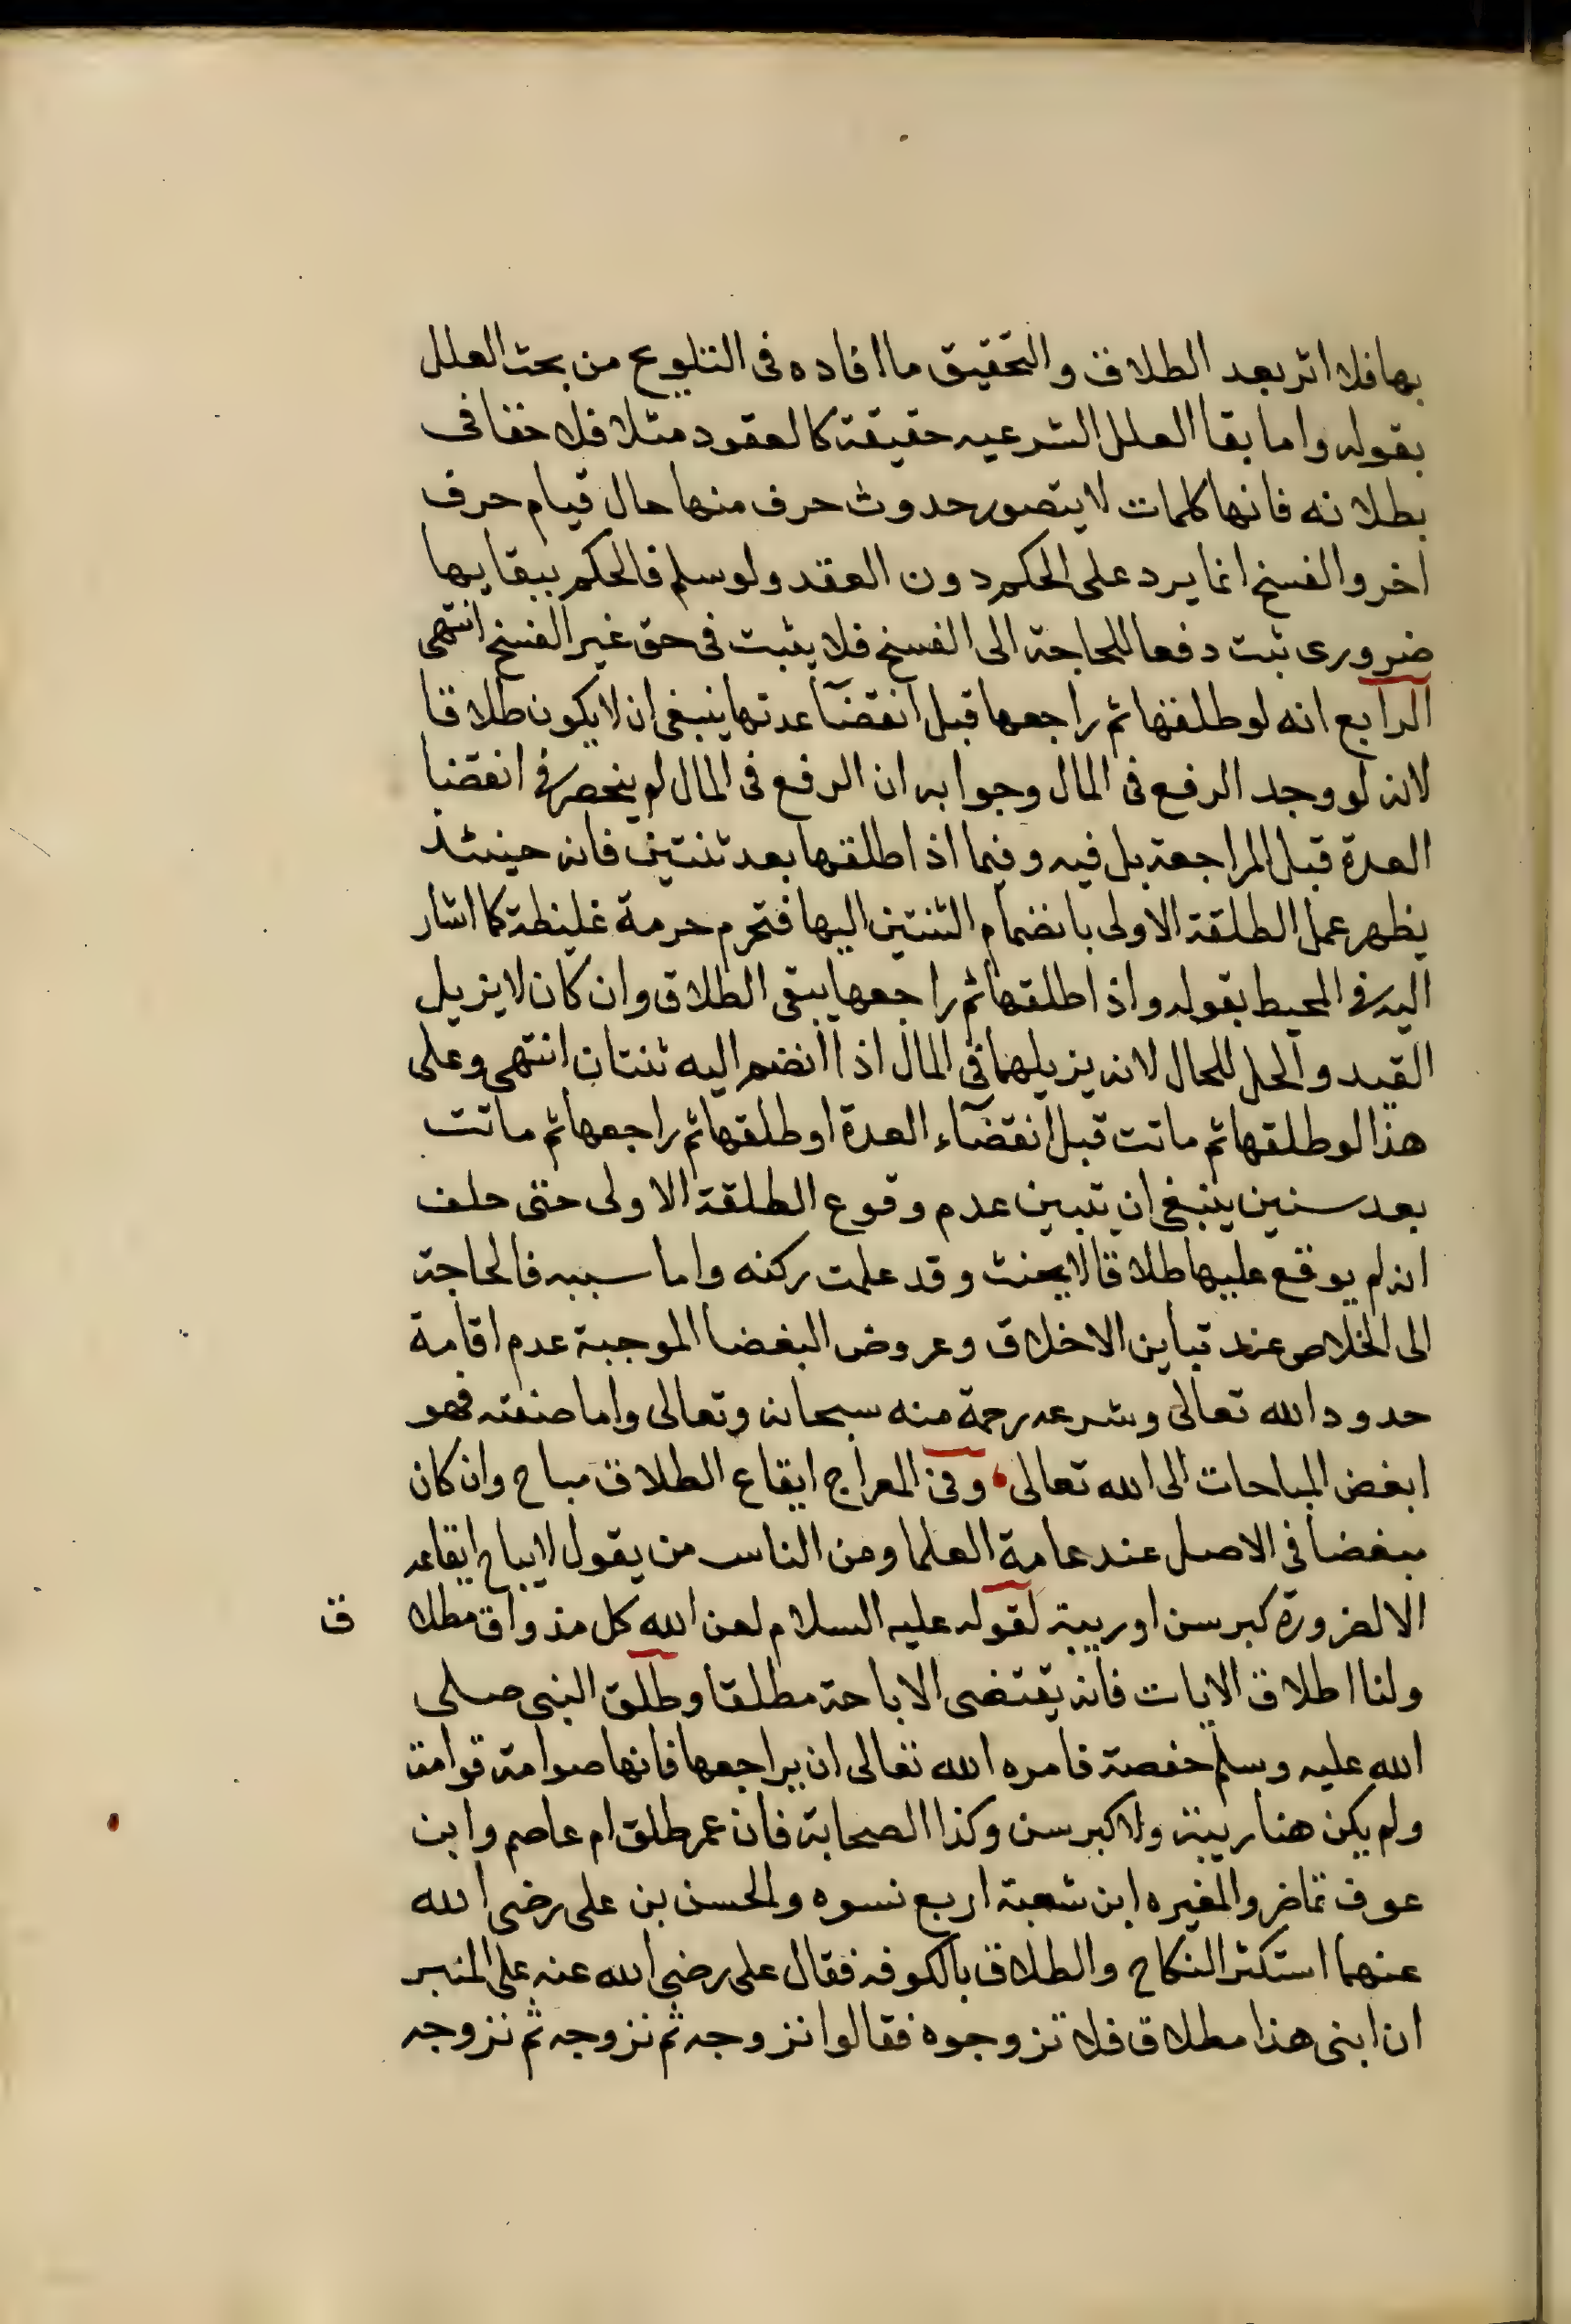 بها فلا اثر بعد الطلاق والتحقيق ما افاده فى التلويح من بحث العلل
بقوله واما بقا العلل الشرعيه حقيقة كالعقود مثلا فلا خفا فى
بطلانه فانها كلمات لا يتصور حدوث حرف منها حال قيام حرف
اخر والفسخ انما يرد على الحكم دون العقد ولو سلم فالحكم ببقايها
ضرورى ثبت دفعا للحاجة الى الفسخ فلا يثبت فى حق غير الفسخ انتهى
الرابع انه لو طلقها ثم راجعها قبل انقضآ عدتها ينبغى ان لا يكون طلاقا
لانه لو وجد الرفع فى المال وجوابه ان الرفع فى المال لم ينحصر فى انقضا
العدة قبل المراجعة بل فيه وفيما اذا طلقها بعد ثنتين فانه حينئذ
يظهر عمل الطلقة الاولى بانضمام الثنتين اليها فتحرم حرمة غليظة كما اشار
اليه فى المحيط بقوله واذا طلقها ثم راجعها يبقى الطلاق وان كان لا يزيل
القيد والحل للحال لانه يزيلهما فى المال اذا انضم اليه ثنتان انتهى وعلى
هذا لو طلقها ثم ماتت قبل انقضآء العدة او طلقها ثم راجعها ثم ماتت
بعد سنين ينبغى ان تبين عدم وقوع الطلقة الاولى حتى حلف
انه لم يوقع عليها طلاقا لا يحنث وقد علمت ركنه واما سببه فالحاجة
الى الخلاص عند تباين الاخلاق وعروض البغضا الموجبة عدم اقامة
حدود الله تعالى وشرعه رحمة منه سبحانه وتعالى واما صفته فهو
ابغض المباحات الى الله تعالى وفى المعراج ايقاع الطلاق مباح وان كان
مبغضا فى الاصل عند عامة العلما ومن الناس من يقول لا يباح ايقاعه
الا لضرورة كبر سن او ريبة لقوله عليه السلام لعن الله كل مذواق مطلا ق
ولنا اطلاق الايات فانه يقتضى الاباحة مطلقا وطلق النبى صلى
الله عليه وسلم حفصة فامره الله تعالى ان يراجعها فانها صوامة قوامة
ولم يكن هنا ريبة ولا كبر سن وكذا الصحابة فان عمر طلق ام عاصم وابن
عوف تماضر والمغيره ابن شعبة اربع نسوه والحسن بن على رضى الله
عنهما استكثر النكاح والطلاق بالكوفه فقال على رضى الله عنه على المنبر
ان ابنى هذا مطلاق فلا تزوجوه فقالوا نزوجه ثم نزوجه ثم نزوجه